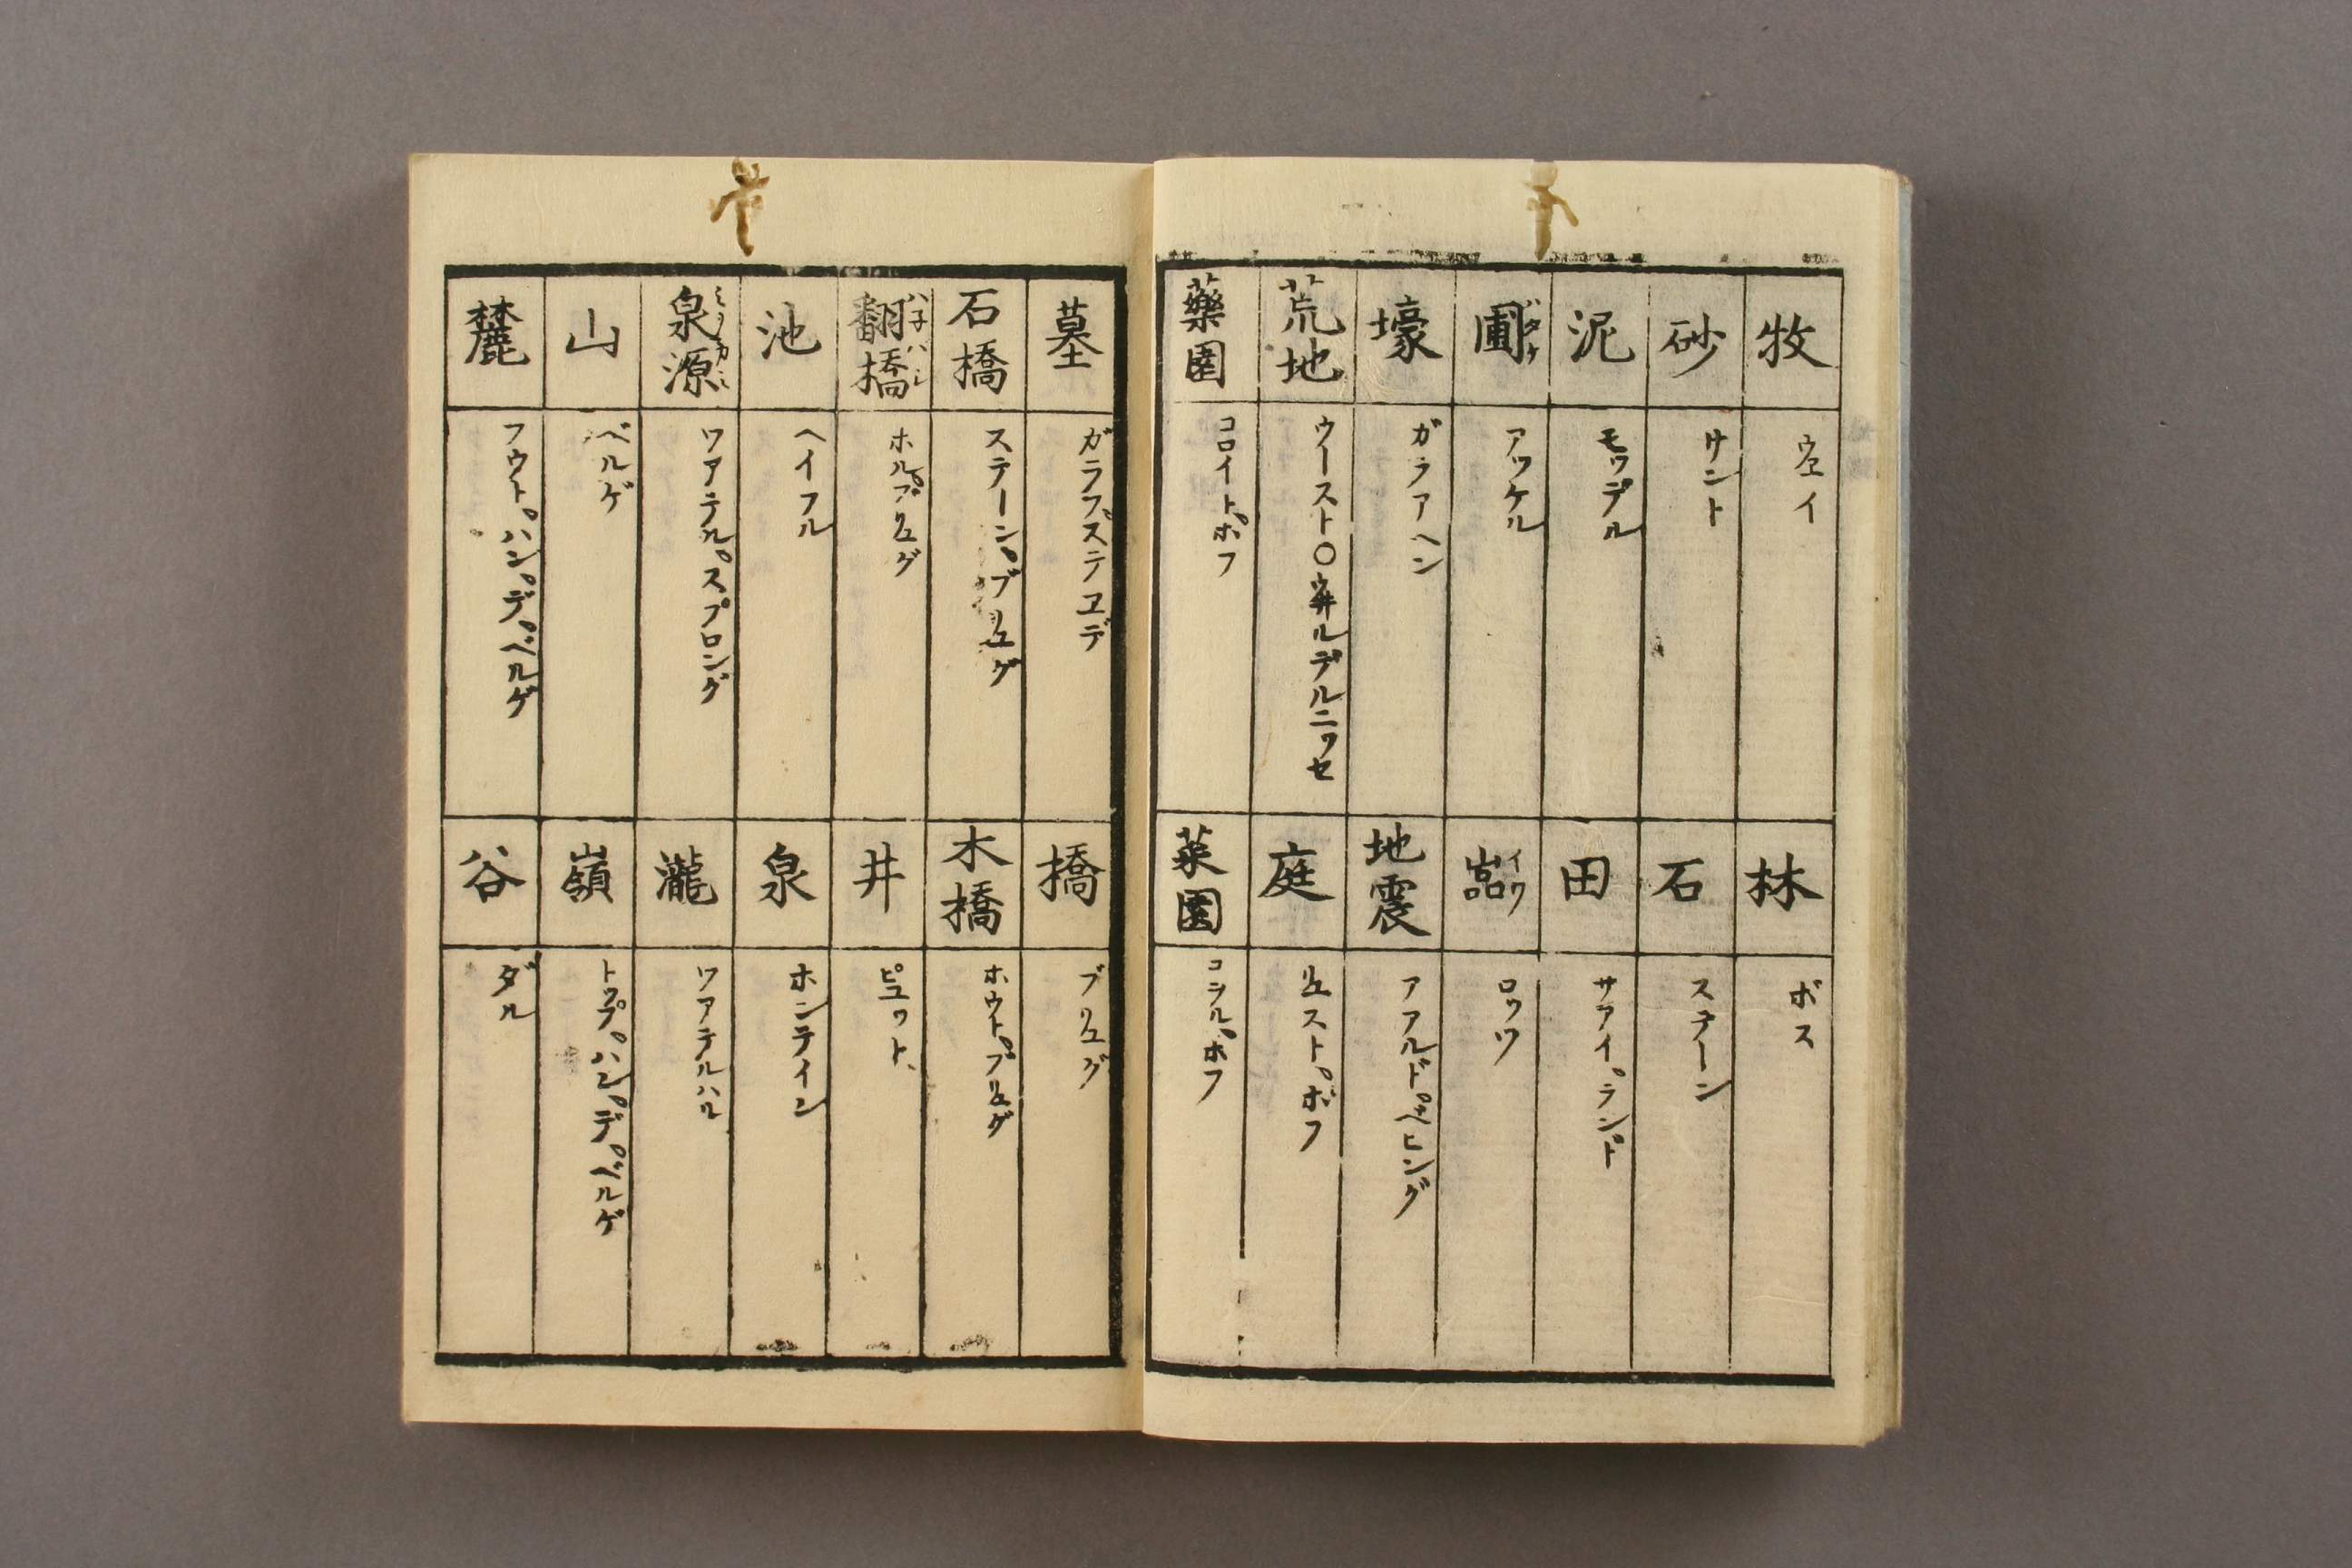 牧 ウヱイ
砂 サント
泥 モツデル
圃 ハタケ アツケル
壕 ガラアヘン
荒地 ウースト〇ウ井ルデルニツセ
藥園 コロイト。ホフ
林 ボス
石 ステーン
田 サアイ。ランド
嵓 イワ ロツツ
地震 アアルド。ベヒング
庭 リュスト。ボフ
菜園 コヲル。ホフ
墓 ガラフ。ステヱデ
石橋 ステーン。ブリュグ
翻橋 ハ子バシ ホル。ブリュグ
池 ヘイフル
泉源 ミヅカミ ワアテル。スプロング
山 ベルゲ
麓 フウト。ハン。デ。ベルゲ
橋 ブリュグ
木橋 ホウト。ブリュグ
井 ピュット
泉 ホンテイン
瀧 ワアテルハル
嶺 トップ。ハン。デ。ベルゲ
谷 ダル